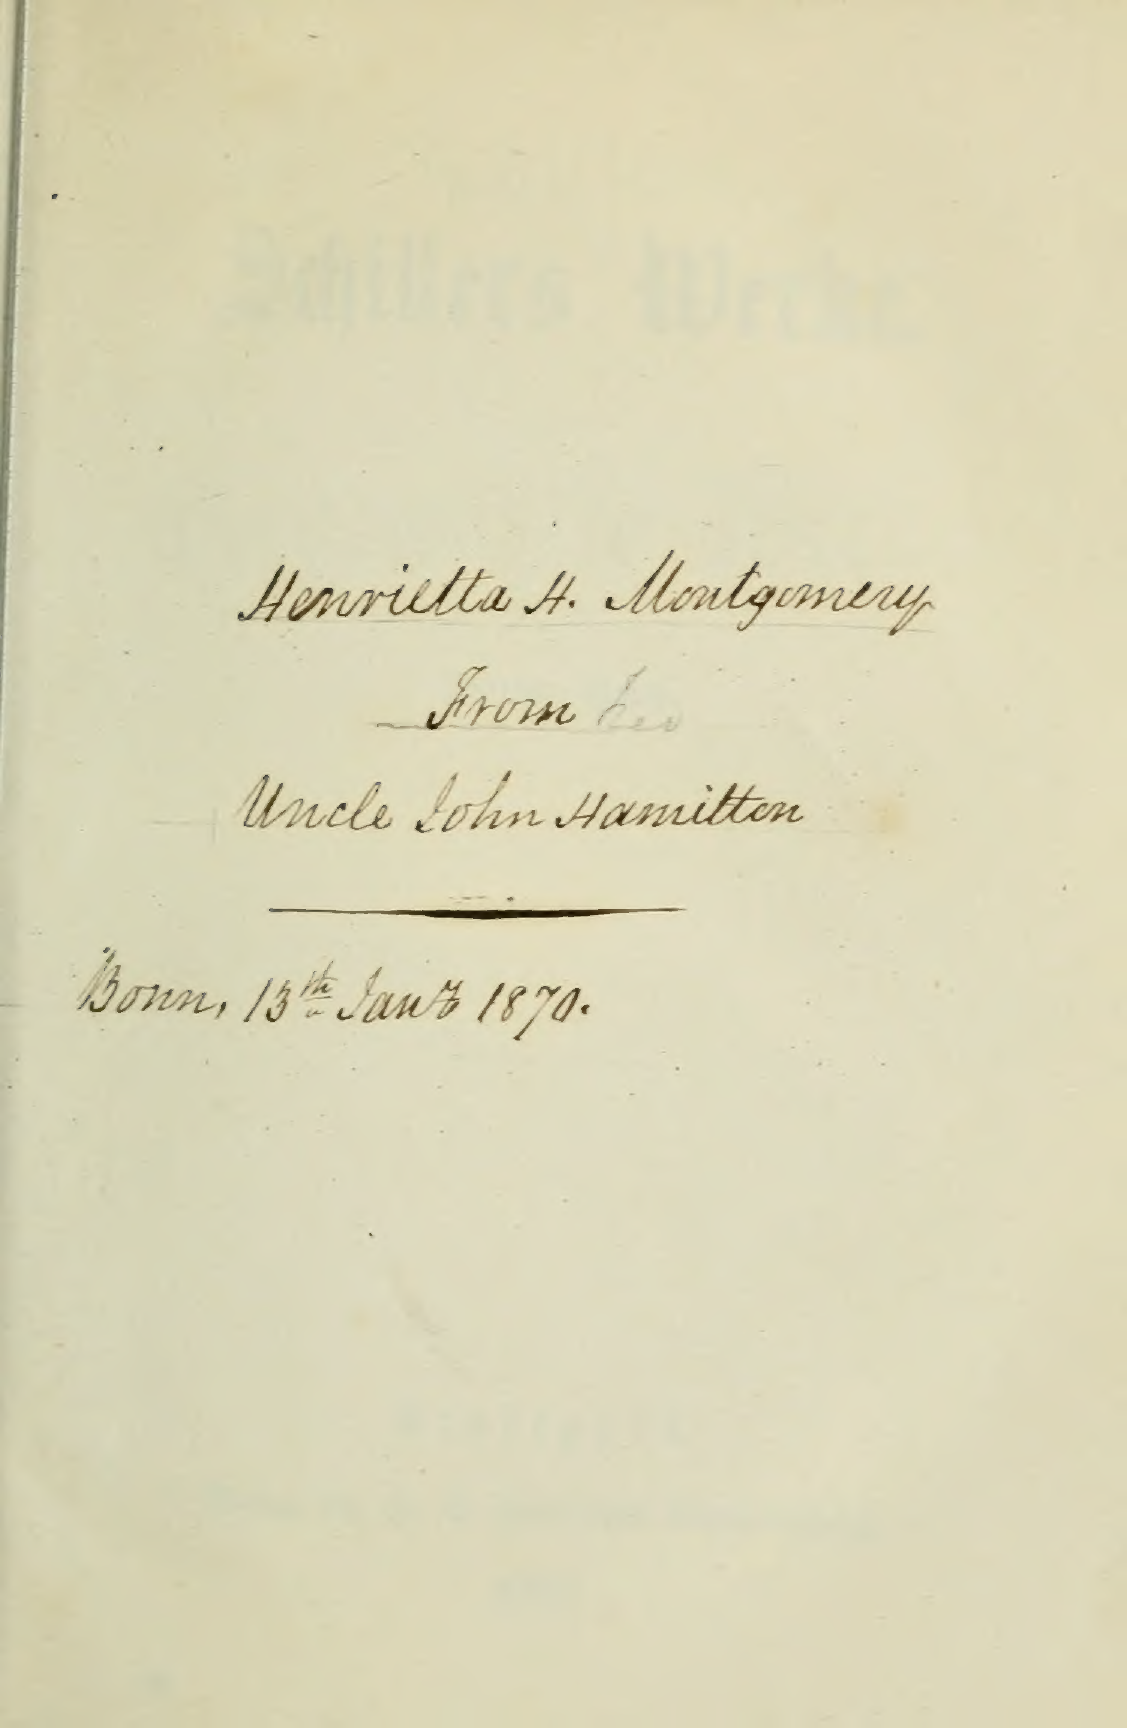 Schillers Werke.
Henrietta H. Montgomery
From
Uncle John Hamilton
Bonn, 13th Jany 1870.